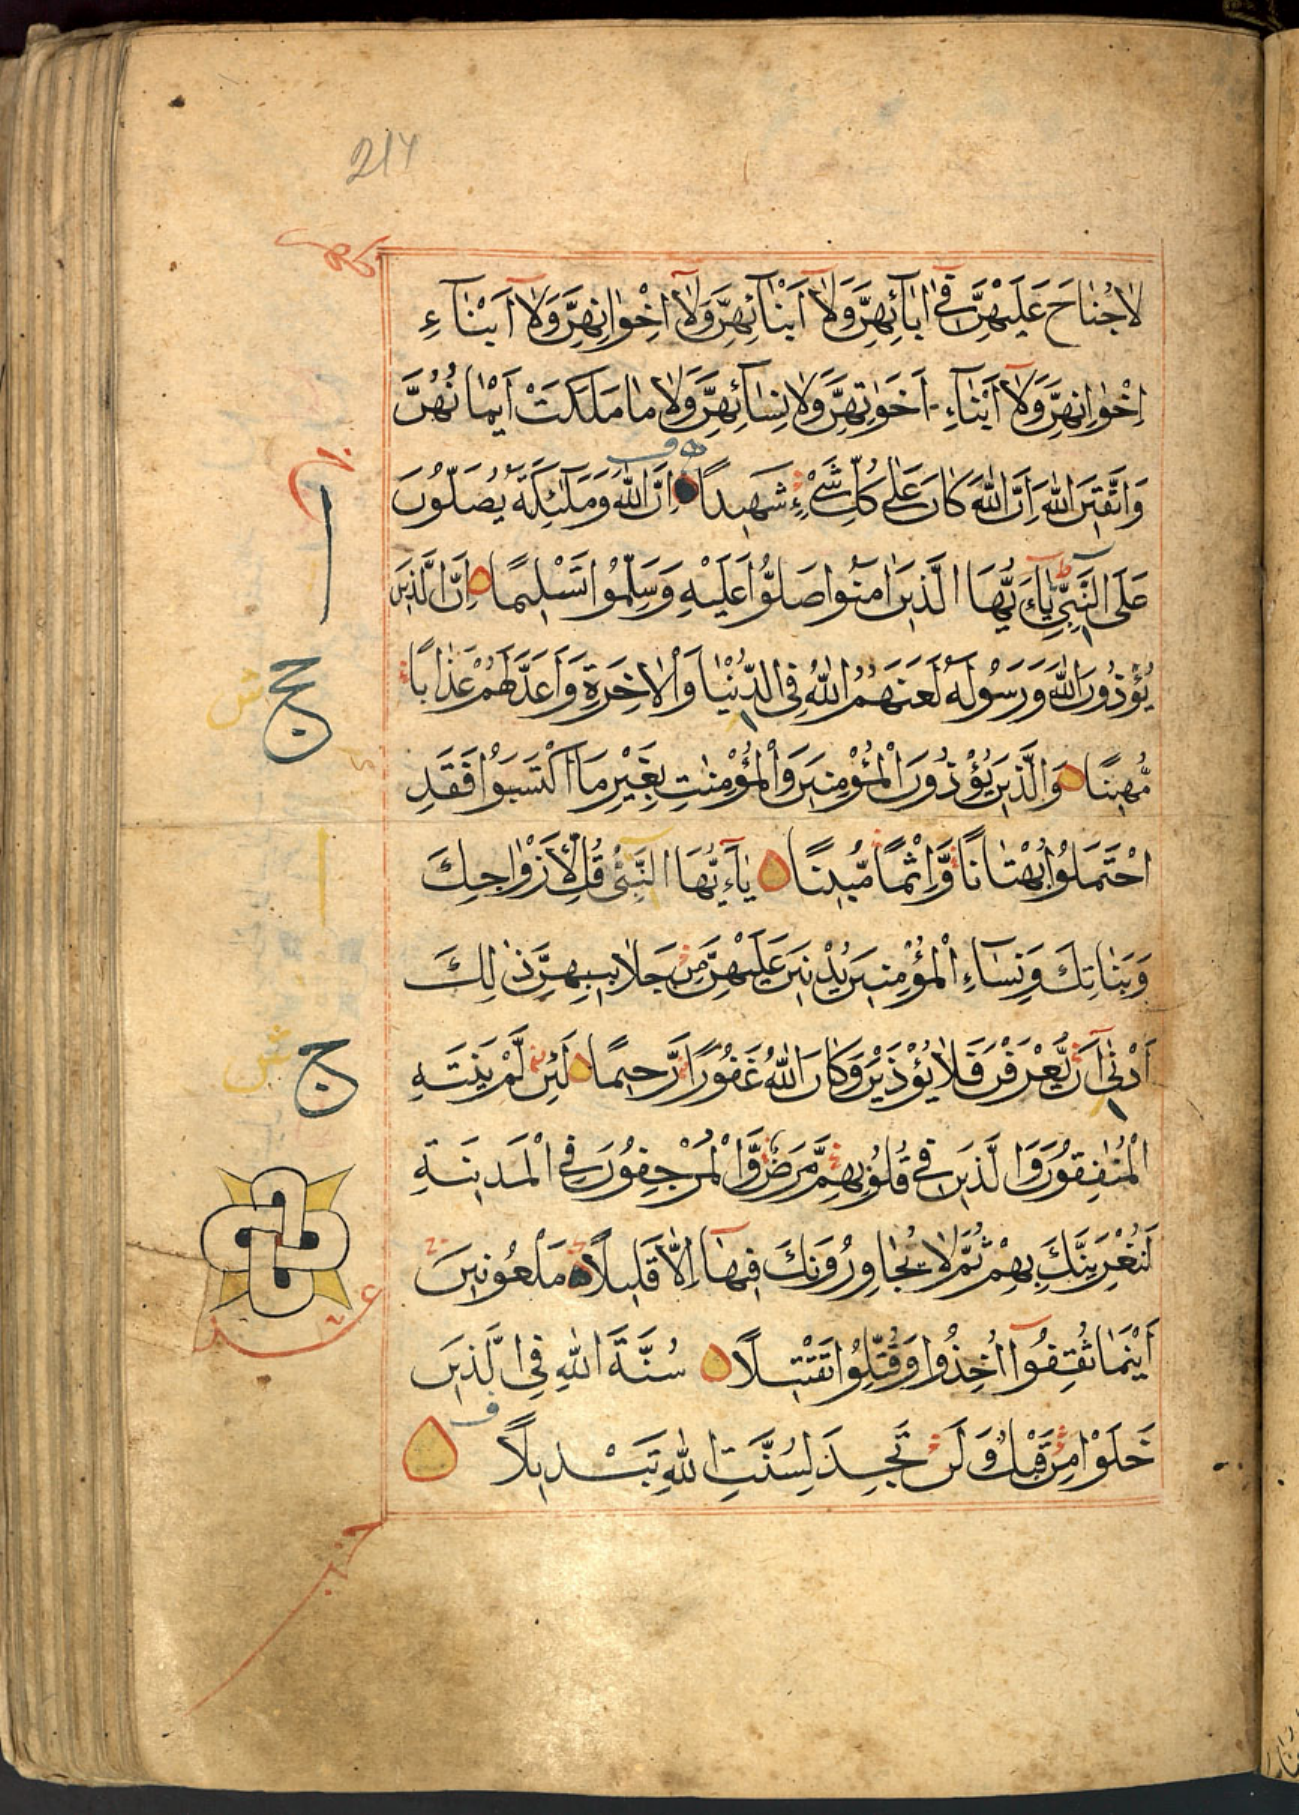 217
لَا جُنَاحَ عَلَيْهِنَّ فِي اٰبَآئِهِنَّ وَلَآ اَبْنَآئِهِنَّ وَلَآ اِخْوَانِهِنَّ وَلَآ اَبْنَآءِ
اِخْوَانِهِنَّ وَلَآ اَبْنَآءِ اَخَوَاتِهِنَّ وَلَا نِسَآئِهِنَّ وَلَا مَا مَلَكَتْ اَيْمَانُهُنَّ
وَاتَّقِيْنَ اللّٰهَ اِنَّ اللّٰهَ كَانَ عَلٰى كُلِّ شَيْءٍ شَهِيدًا اِنَّ اللّٰهَ وَمَلٰٓئِكَتَهٗ يُصَلُّونَ
عَلَى النَّبِيِّ يَآءَيُّهَا الَّذِينَ اٰمَنُوا صَلُّوا عَلَيْهِ وَسَلِّمُوا تَسْلِيمًا اِنَّ الَّذِينَ
يُؤْذُونَ اللّٰهَ وَرَسُولَهٗ لَعَنَهُمُ اللّٰهُ فِي الدُّنْيَا وَالْاٰخِرَةِ وَاَعَدَّ لَهُمْ عَذَابًا
مُّهِينًا وَالَّذِينَ يُؤْذُونَ الْمُؤْمِنِينَ وَالْمُؤْمِنٰتِ بِغَيْرِ مَا اكْتَسَبُوْا فَقَدِ
احْتَمَلُوْا بُهْتَانًا وَّاِثْمًا مُّبِينًا يَآءَيُّهَا النَّبِيُّ قُلْ لِّاَزْوَاجِكَ
وَبَنَاتِكَ وَنِسَآءِ الْمُؤْمِنِينَ يُدْنِينَ عَلَيْهِنَّ مِنْ جَلَابِيبِهِنَّ ذٰلِكَ
اَدْنٰى اَنْ يُّعْرَفْنَ فَلَا يُؤْذَيْنَ وَكَانَ اللّٰهُ غَفُوْرًا رَّحِيمًا لَئِنْ لَّمْ يَنْتَهِ
الْمُنٰفِقُوْنَ وَالَّذِينَ فِي قُلُوْبِهِمْ مَّرَضٌ وَّالْمُرْجِفُوْنَ فِي الْمَدِينَةِ
لَنُغْرِيَنَّكَ بِهِمْ ثُمَّ لَا يُجَاوِرُوْنَكَ فِيهَآ اِلَّا قَلِيلًا مَلْعُوْنِينَ
اَيْنَمَا ثُقِفُوْٓا اُخِذُوا وَقُتِّلُوْا تَقْتِيلًا سُنَّةَ اللّٰهِ فِي الَّذِينَ
خَلَوْا مِنْ قَبْلُ وَلَنْ تَجِدَ لِسُنَّتِ اللّٰهِ تَبْدِيلًا